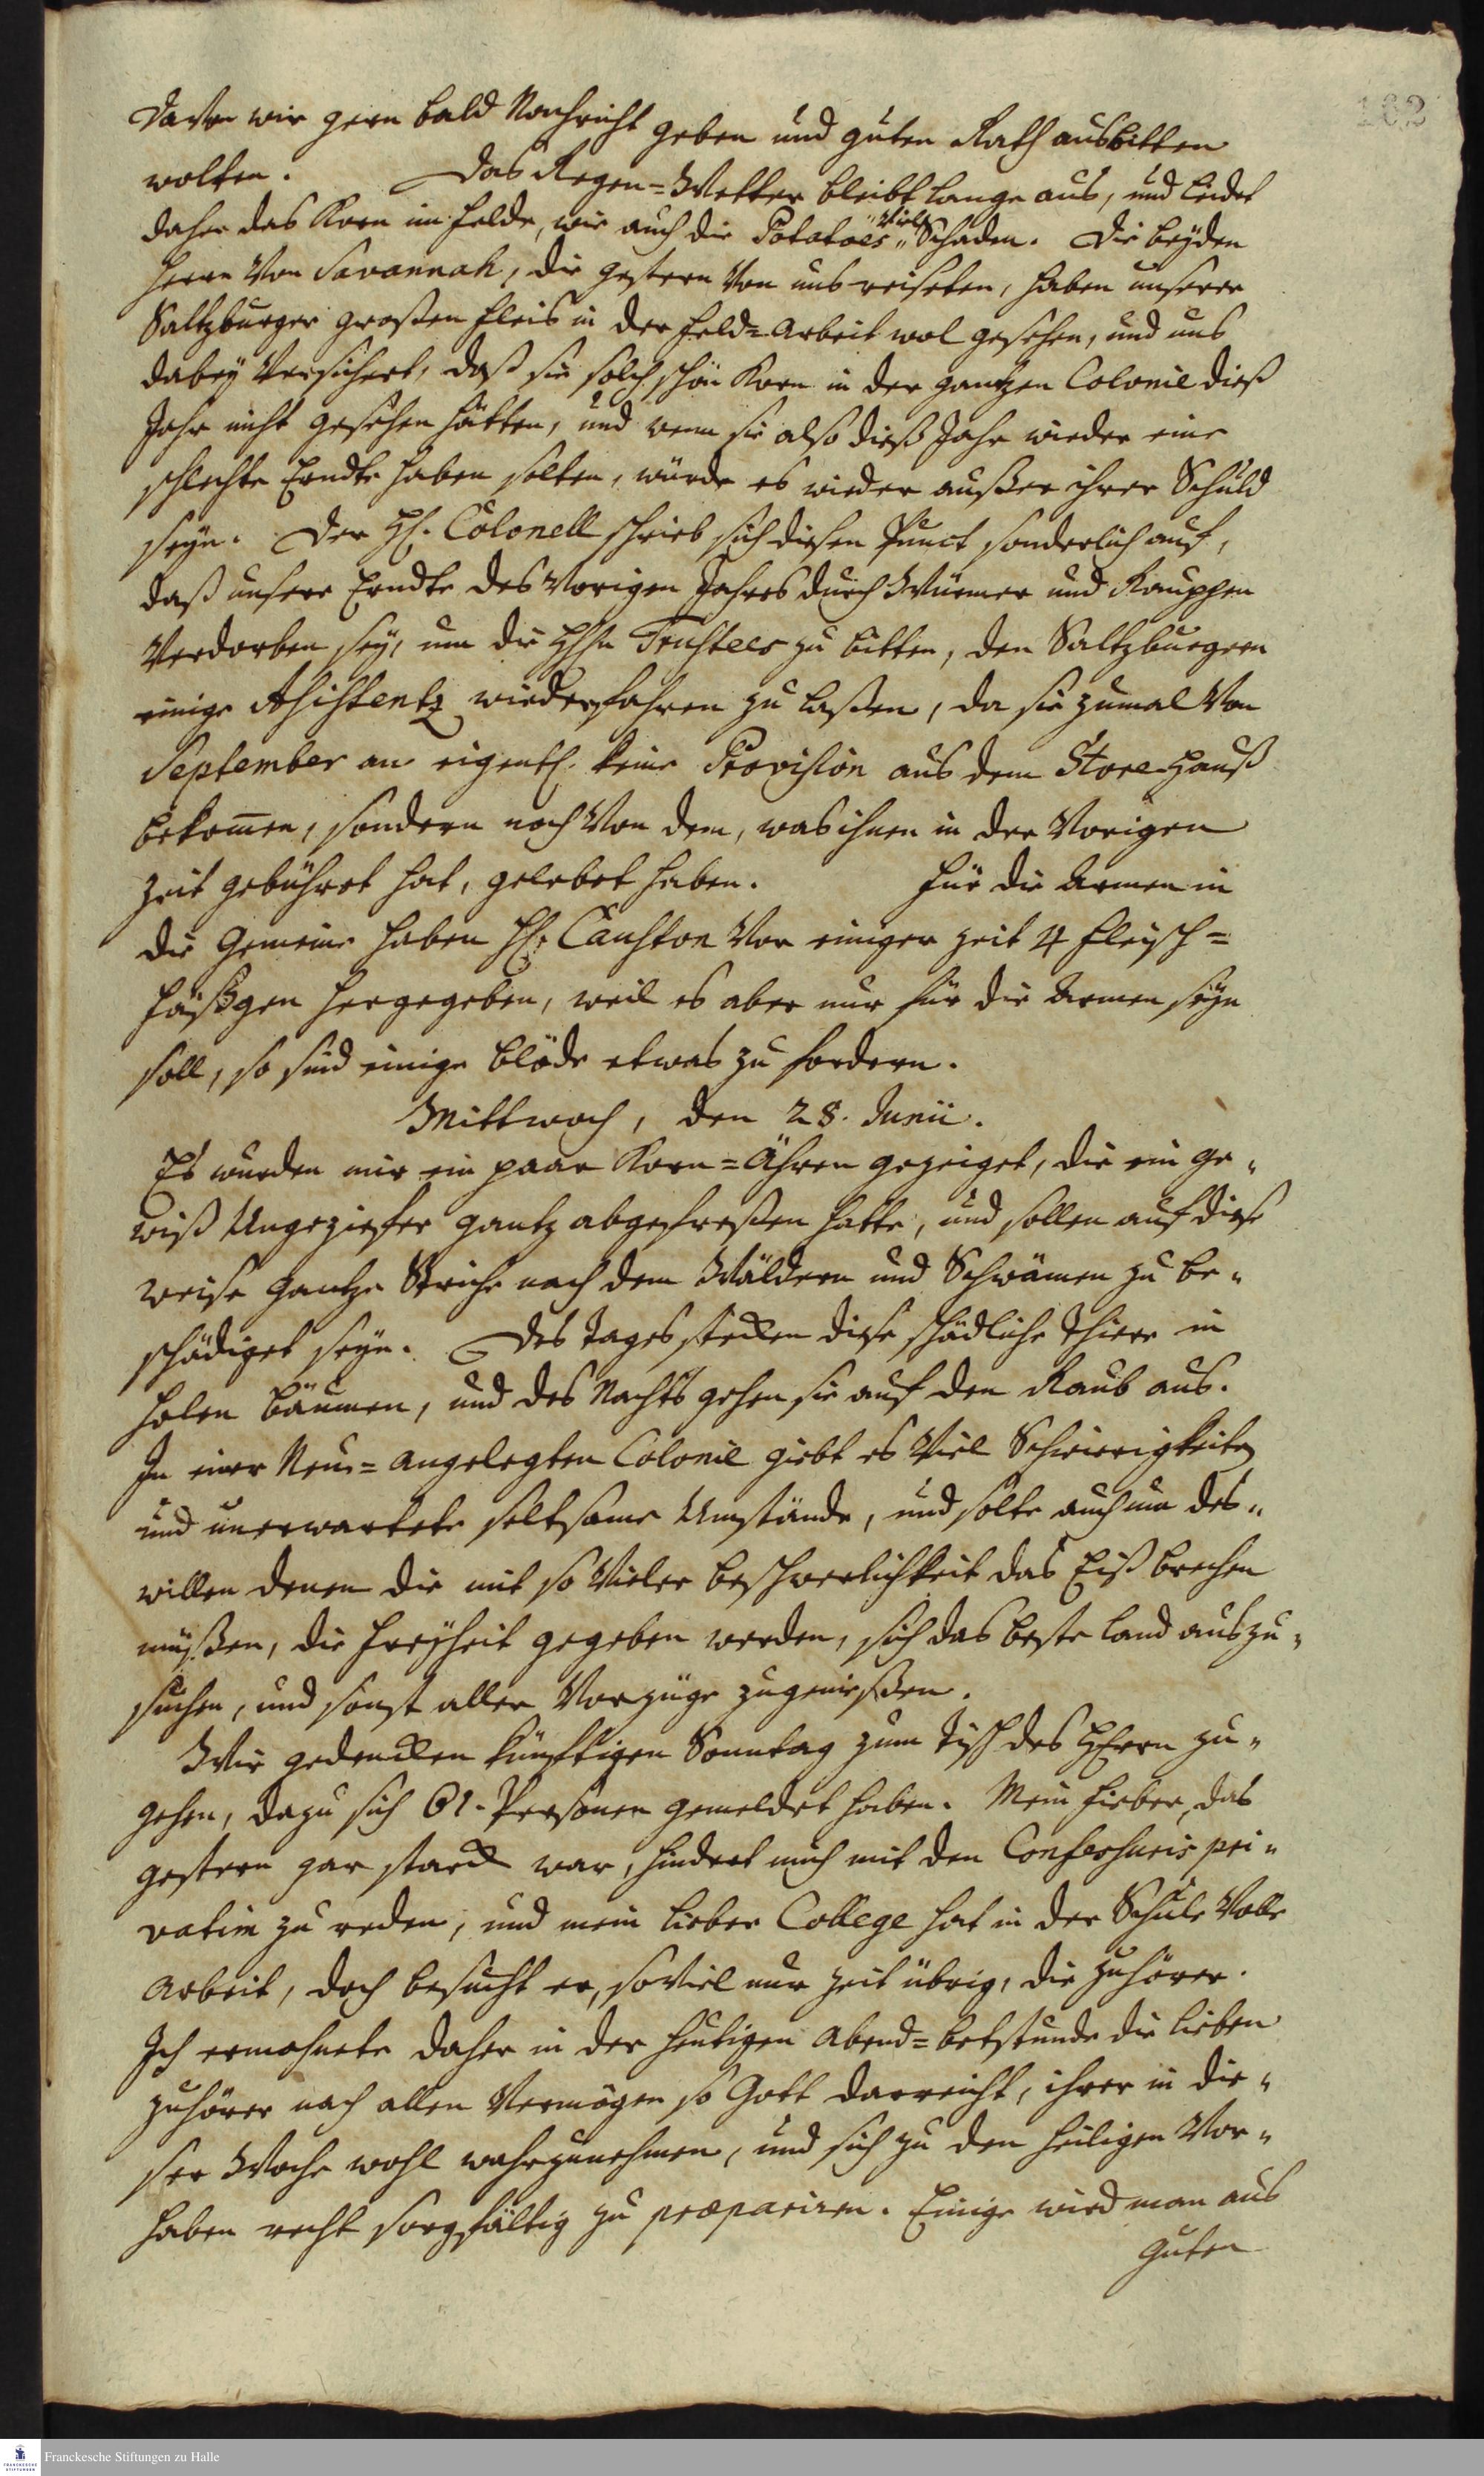 162
davon wir gern bald Nachricht geben und guten Rath ausbitten
wolten. Das Regen=Wetter bleibt lange aus, und leidet
daher das Korn im Felde, wie auch die Potatoes viel Schaden. Die beyden
Herrn von Savannah, die gestern von uns reiseten, haben unserer
Saltzburger großen Fleis in der Feld=Arbeit wol gesehen, und uns
dabey versichert, daß sie solch schön Korn in der gantzen Colonie dieß
Jahr nicht gesehen hätten, und wenn sie also dieß Jahr wieder eine
schlechte Erndte haben solten, würde es wieder außer ihrer Schuld
seyn. Der H. Colonell schrieb sich diesen Punct sonderlich auf,
daß unsere Erndte des vorigen Jahrs durch Würmer und Rauppen
verdorben sey, um die HHn Trustees zu bitten, den Saltzburgern
einige Assistentz wiederfahren zu laßen, da sie zumal von
September an eigentl. keine Provision aus dem Store-Hauß
bekom̄en, sondern noch von dem, was ihnen in der vorigen
Zeit gebühret hat, gelebet haben. Für die Armen in
die Gemeine haben H. Causton vor einiger Zeit 4 Fleisch=
fäßgen hergegeben, weil es aber nur für die Armen seyn
soll, so sind einige blöde etwas zu fordern.
Mittwoch, den 28. Junii.
Es wurden mir ein paar Korn=Ähren gezeiget, die ein ge=
wiß Ungeziefer gantz abgefreßen hatte, und sollen auf diese
weise gantze Striche nach dem Wäldern und Schwämen zu be=
schädiget seyn. Des Tages stecken diese schädliche Thiere in
holen Bäumen, und des Nachts gehen sie auf den Raub aus.
In einer Neu=angelegten Colonie giebt es viel Schwierigkeiten
und unerwartete seltsame Umstände, und solte auch um des=
willen denen die mit so vieler Beschwerlichkeit das Eiß brechen
müßen, die Freyheit gegeben werden, sich das beste Land auszu=
suchen, und sonst aller Vorzüge zugenießen.
Wir gedencken künftigen Sonntag zum Tisch des HErrn zu=
gehen, dazu sich 61. Personen gemeldet haben. Mein Fieber, das
gestern gar starck war, hindert mich mit den Confessuris pri=
vatim zu reden, und mein lieber College hat in der Schule volle
Arbeit, doch besucht er, so viel nur Zeit übrig, die Zuhörer.
Ich ermahnete daher in der heutigen Abend=betstunde die lieben
Zuhörer nach allen Vermögen so Gott darreicht, ihrer in die=
ser Woche wohl wahrzunehmen, und sich zu den heiligen Vor=
haben recht sorgfältig zu præpariren. Einige wird man aus
guten
Franckesche Stiftungen zu Halle